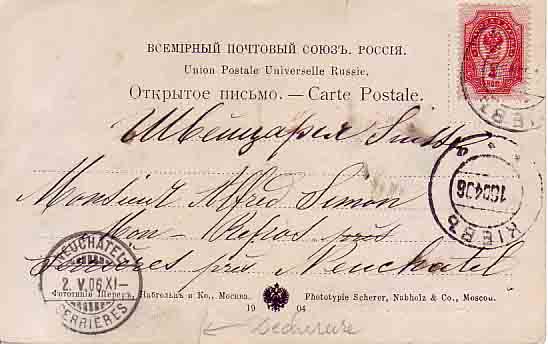 ВСЕМІРНЫЙ ПОЧТОВЫЙ СОЮЗЪ. РОССІЯ.
Union Postale Universelle Russie.
Открытое письмо.—Carte Postale.
КІЕВЪ
Швейцарія Suisse
Monsieur Alfred Simon
Mon-Repos près
Serrières près Neuchatel
КІЕВЪ
NEUCHATEL
2.V.06.XI—
SERRIÈRES
Фототипія Шереръ, Набгольцъ и Ко., Москва.
Phototypie Scherer, Nabholz & Co., Moscou.
19 04